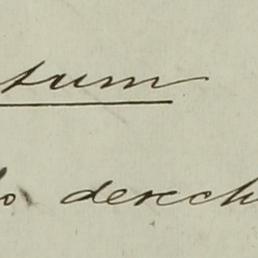 tum
lo derech